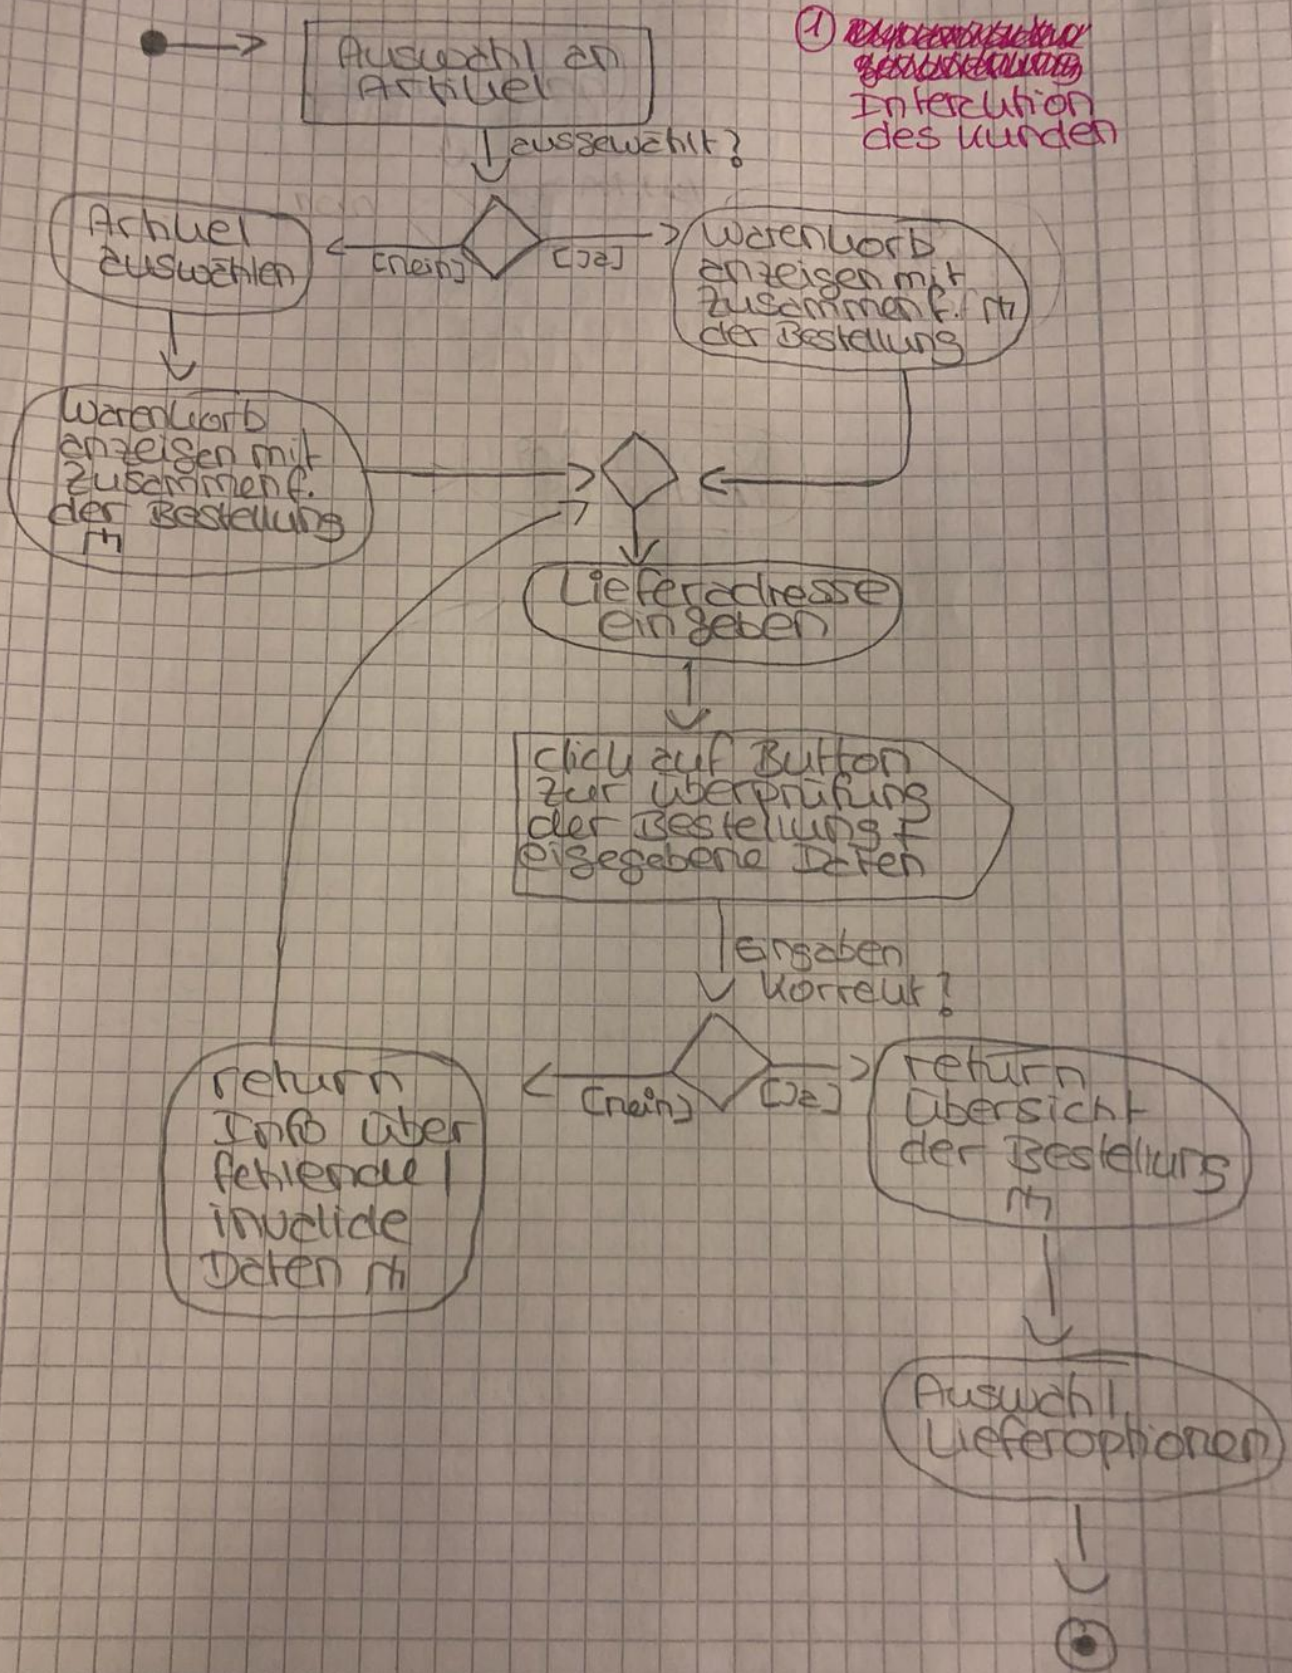 Auswahl an
Artikel
① 
Interaktion
des Kunden
ausgewählt?
Artikel
auswählen
[nein]
[Ja]
Warenkorb
anzeigen mit
Zusammenf.
der Bestellung
Warenkorb
anzeigen mit
Zusammenf.
der Bestellung
Lieferadresse
eingeben
click auf Button
zur Überprüfung
der Bestellung +
eigegebene Daten
Eingaben
korrekt?
[nein]
[Ja]
return
Info über
fehlende /
invalide
Daten
return
Übersicht
der Bestellung
Auswahl
Lieferoptionen